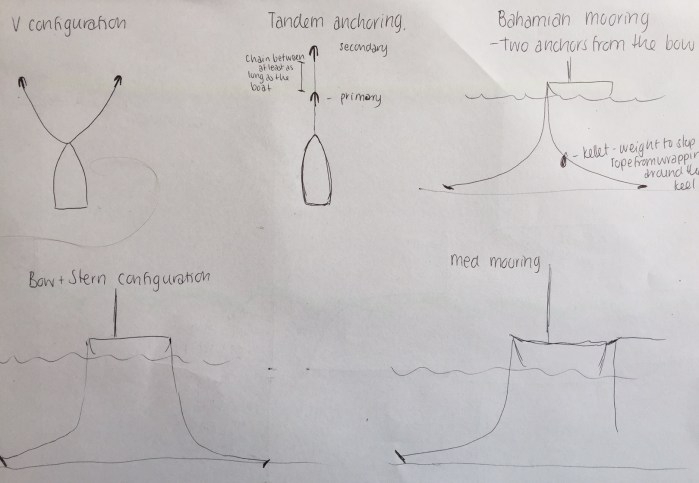 V configuration
Tandem anchoring.
secondary
Chain between
at least as
long as the
boat
- primary
Bahamian mooring
- Two anchors from the bow
- kellet - weight to stop
rope from wrappin
around the
keel
Bow + Stern configuration
med mooring